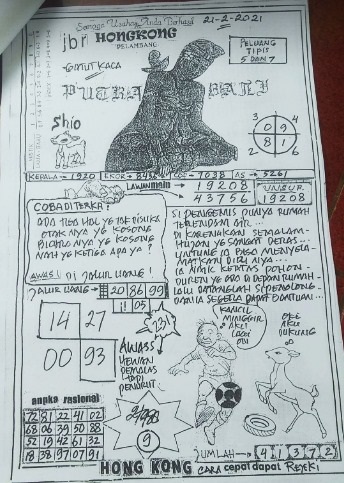 Semoga Usaha Anda Berhasil
21-2-2021
jbr HONGKONG
PALEMBANG
GATUT KACA
PELUANG
TIPIS
5 DAN 7
PUTRA BALI
Shio
0
3 9 4
2 8 1 6
KEPALA → 1920 EKOR → 8935 → 7038 AS → 5261
LAWAN MAIN → 19208
43756
UNSUR
19208
COBA DITERKA?
ADA TIGA HAL YG TDK DISUKA
OTAK NYA YG KOSONG
BICARA NYA YG KOSONG
NAH YG KETIGA APA YA?
AWAS! DI JALUR UANG!
JALUR UANG → 20 86 99
11 05
SI PENGEMIS PUNYA RUMAH
TERENDAM AIR...
DI KARENAKAN SEMALAM
HUJAN YG SANGAT DERAS...
UNTUNG IA BISO MENYELA-
MATKAN DIRI NYA...
IA NAIK KEATAS POHON
DUREN YG ADA DI DEPAN RUMAH
LALU DATANGLAH SI PENOLONG
DAN IA SEGERA DAPAT BANTUAN...
14 27
00 93
231
AWASS
HEWAN
PEMALAS
TAPI
PENURUT
KANCIL
MINGGIR
AKU
LAGI
OKE
AKU
DUKUNG
angka rasional
72 81 22 41 02
68 06 39 50 88
52 19 42 61 32
18 38 97 07 91
9
JUMLAH → 4 1 3 7 2
HONG KONG CARA cepat dapat REJEKI